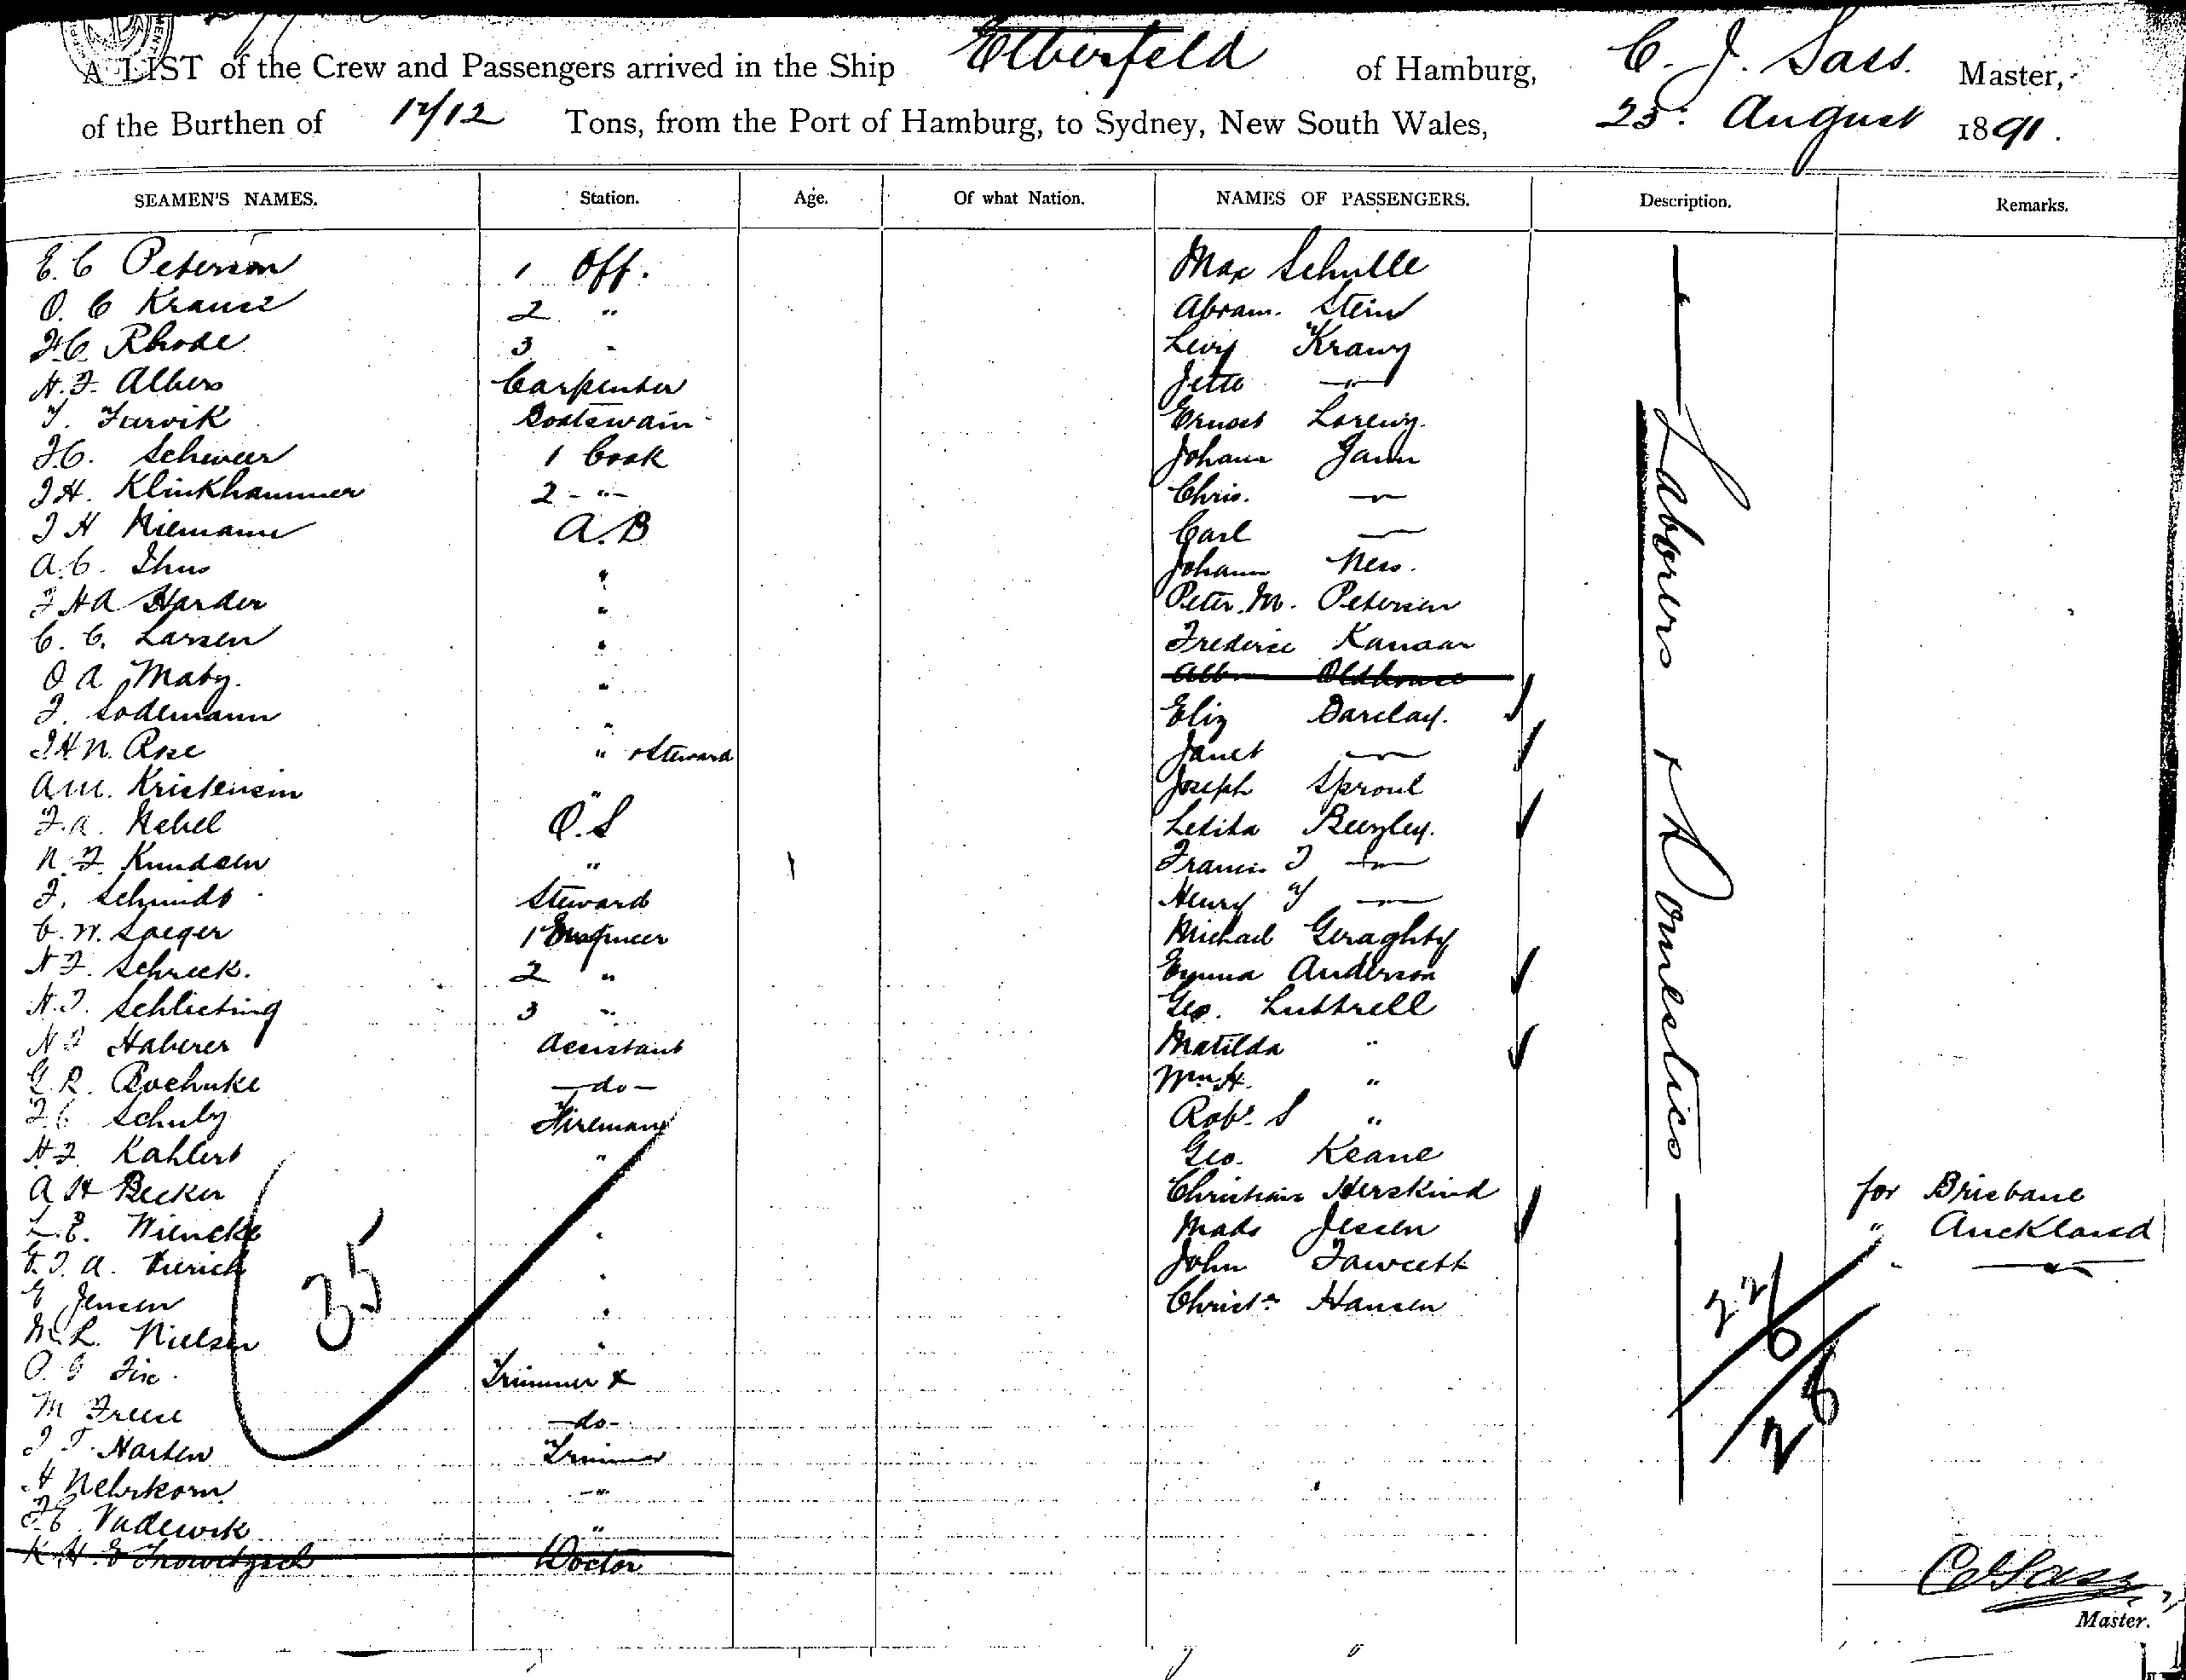 A LIST of the Crew and Passengers arrived in the Ship Elberfeld of Hamburg, C. J. Sass. Master,
of the Burthen of 17/12 Tons, from the Port of Hamburg, to Sydney, New South Wales, 23. August 1891.
SEAMEN'S NAMES. Station. Age. Of what Nation. NAMES OF PASSENGERS. Description. Remarks.
E. C Peterson 1 Off. Max Schulle
O. C Krause 2 " Abram. Stein
Rhode 3 " Levy Krawy
H. F. Albers Carpenter Jette —"—
Boatswain Ernest
Scheveer 1 Cook Johann
J H. Klinkhammer 2 - "- Chris. —"—
J H Niemann A. B Carl —"—
A. C. " Johann Ness.
J H A Harder " Peter M. Petersen
C. C. Larsen " Kanaan
O A " Oldhouse
J. Sodemann " Eliz Barclay.
J H N. " + Steward Janet —"—
A M. Kristensen " Joseph Sproul
F. A. Nebel O. S Letitia Beezley.
N. F. Knudsen " Francis J —"—
J. Schmidt Steward Henry —"—
C. W. Saeger 1 Engineer Michael Geraghty
H F. Schreck. 2 " Emma Anderson
H. J. Schlichting 3 " Geo. Luttrell
Haberer Assistant Matilda "
G. R. Bochnke —do— Wm H. "
Schulz Fireman Robt. S "
H F. Kahlert " Geo. Keane
A H Becker Christian Herskind for Brisbane
L. E. Wiencke " Mads Jessen " Auckland
" John Fawcett " —"—
G Jensen " Christn Hansen
M. L. Nielsen "
Trimmer &
M Freese —do—
J T. Harten Trimmer
H Nehrkorn —"—
"
K. H. E Doctor
Laborers & Domestics
35
22
6
28
C J Sass
Master.